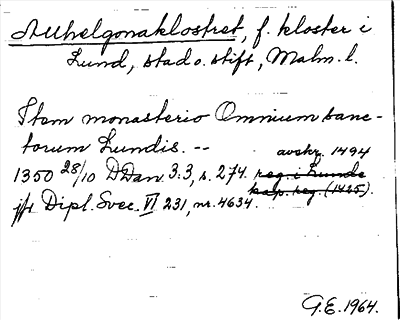 Allhelgonaklostret, f. kloster i
Lund, stad o. stift, Malm. l.
Item monasterio Omnium sanc-
torum Lundis. --
avskr. 1494
1350 28/10 DDan. 3:3, s. 274. reg. i Lunds
kap. reg. (1425).
jfr Dipl. Svec. VI 231, nr. 4634.
G.E. 1964.